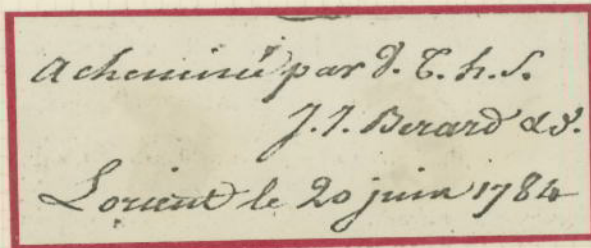 Acheminé par V. T. h. S.
J. J. Berard & C.
Lorient le 20 juin 1784